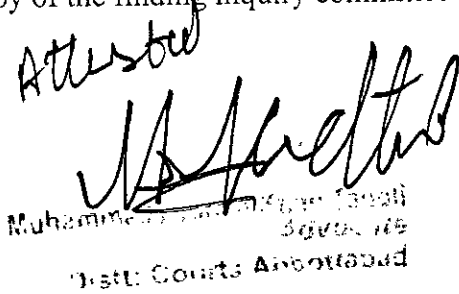 by of the finding inquiry committee
Attested
Muhammad Tanoli
Advocate
Distt: Courts Abbottabad